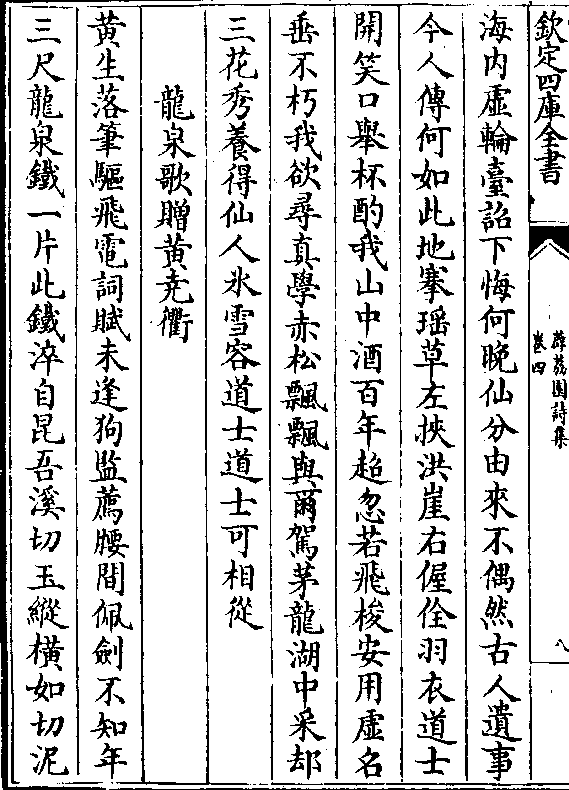 欽定四庫全書
薜荔園詩集
卷四
八
海内虛輪臺詔下悔何晚仙分由來不偶然古人遺事
今人傳何如此地搴瑶草左挾洪崖右偓佺羽衣道士
開笑口舉杯酌我山中酒百年超忽若飛梭安用虛名
垂不朽我欲尋真學赤松飄飄與爾駕茅龍湖中采却
三花秀養得仙人氷雪容道士道士可相從
龍泉歌贈黄堯衢
黄生落筆驅飛電詞賦未逢狗監薦腰間佩劍不知年
三尺龍泉鐵一片此鐵淬自昆吾溪切玉縱橫如切泥